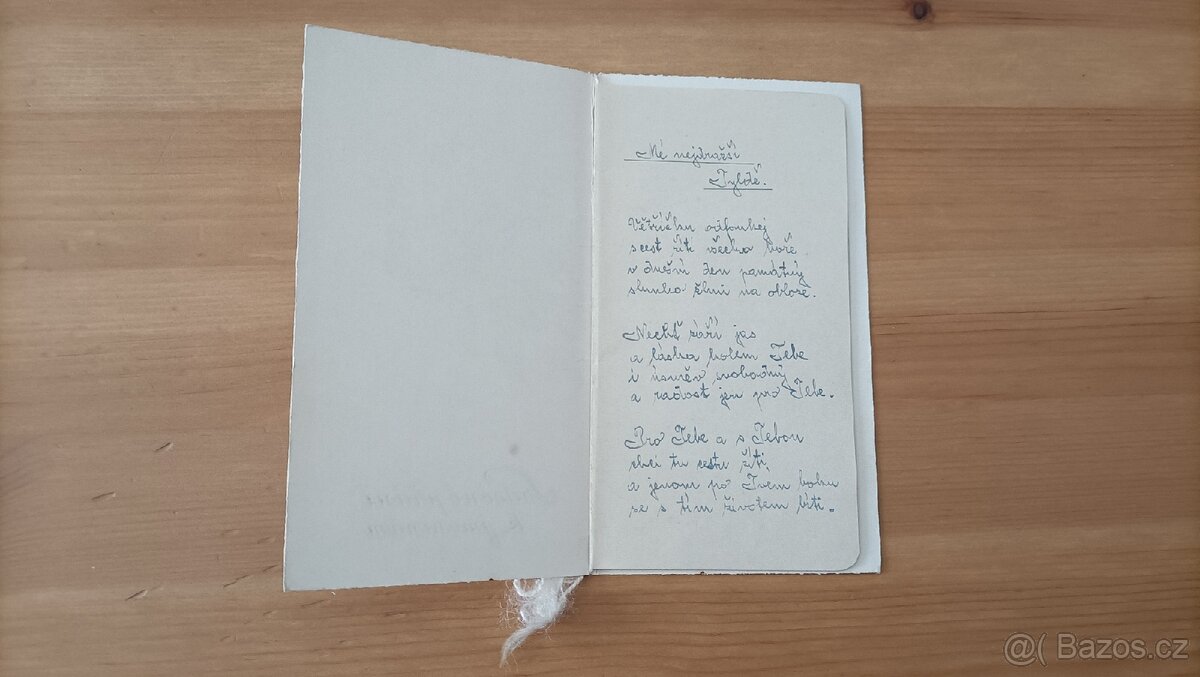 Mé nejdražší
Tyldě.
Větříčku odfoukej
s cest žití všecko hoře
v dnešní den památný
slunko žhni na obloze.
Nechť září jas
a láska kolem Tebe
i úsměv svobodný
a radost jen pro Tebe.
Pro Tebe a s Tebou
chci tu cestu jíti
a jenom po Tvém boku
se s tím životem bíti.
@( Bazos.cz